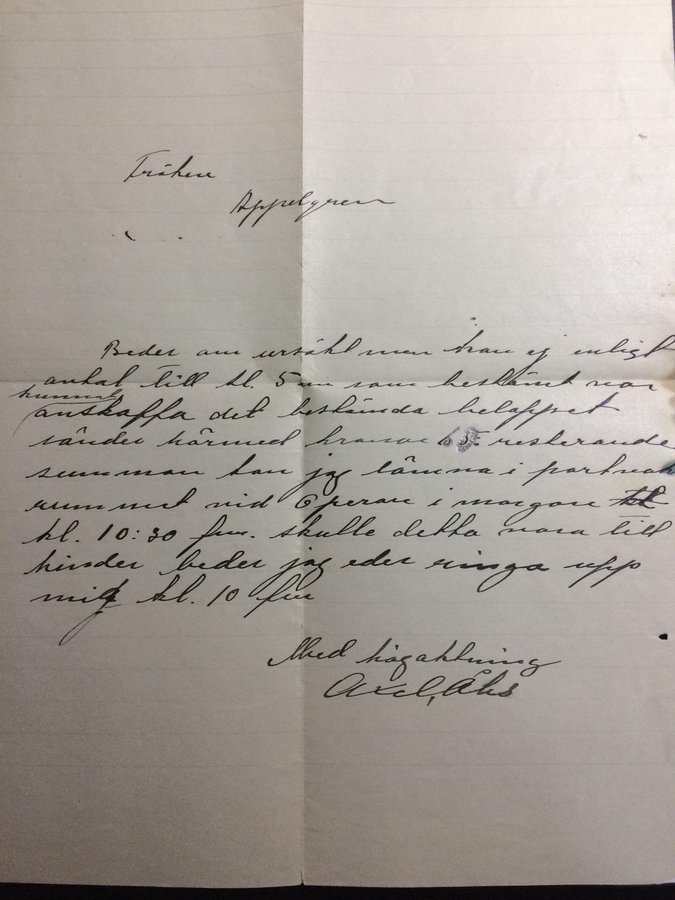 Fröken
Appelgren
Beder om ursäkt men kan ej enligt
avtal till kl. 5 em som bestämt var
kunnat
anskaffa det bestämda beloppet
sänder härmed kronor 65. resterande
summan kan jag lämna i portvakt
rummet vid Operan i morgon
kl. 10:30 fm. skulle detta vara till
hinder beder jag eder ringa upp
mig kl. 10 fm
Med högaktning
Axel,